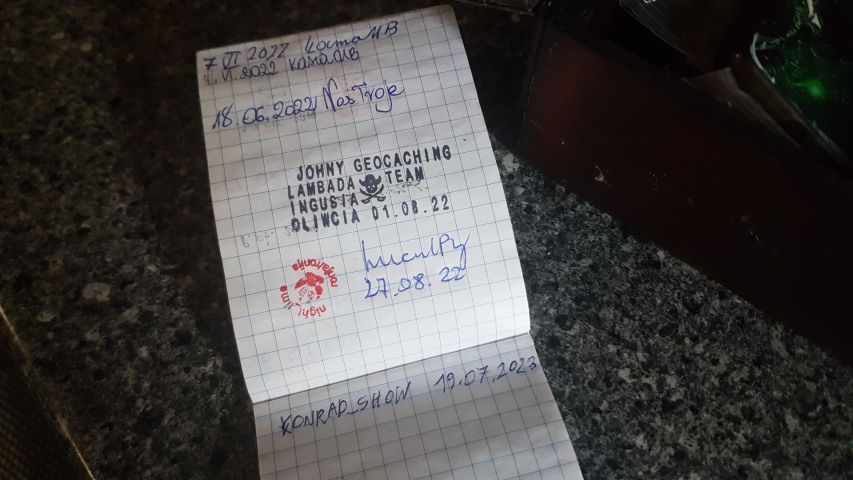 7 VI 2022
VI.2022
18.06.2022 Nas Troje
JOHNY GEOCACHING
LAMBADA TEAM
INGUSIA
OLIWCIA 01.08.22
night
27.08.22
KONRAD_SHOW 19.07.2023